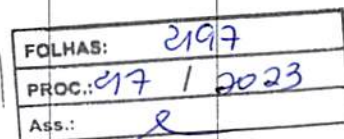 FOLHAS: 2197
PROC.: 47 / 2023
Ass.: